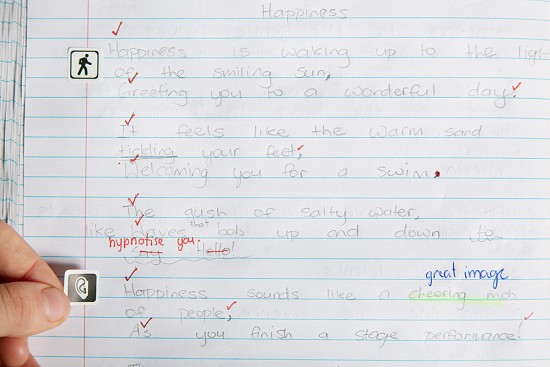 Happiness
Happiness is waking up to the ligh
of the smiling sun,
Greeting you to a wonderful day!
It feels like the warm sand
tickling your feet,
Welcoming you for a swim.
The gush of salty water,
like waves that bob up and down to
hypnotise you.
say Hello!
great image
Happiness sounds like a cheering mob
of people,
As you finish a stage performance!